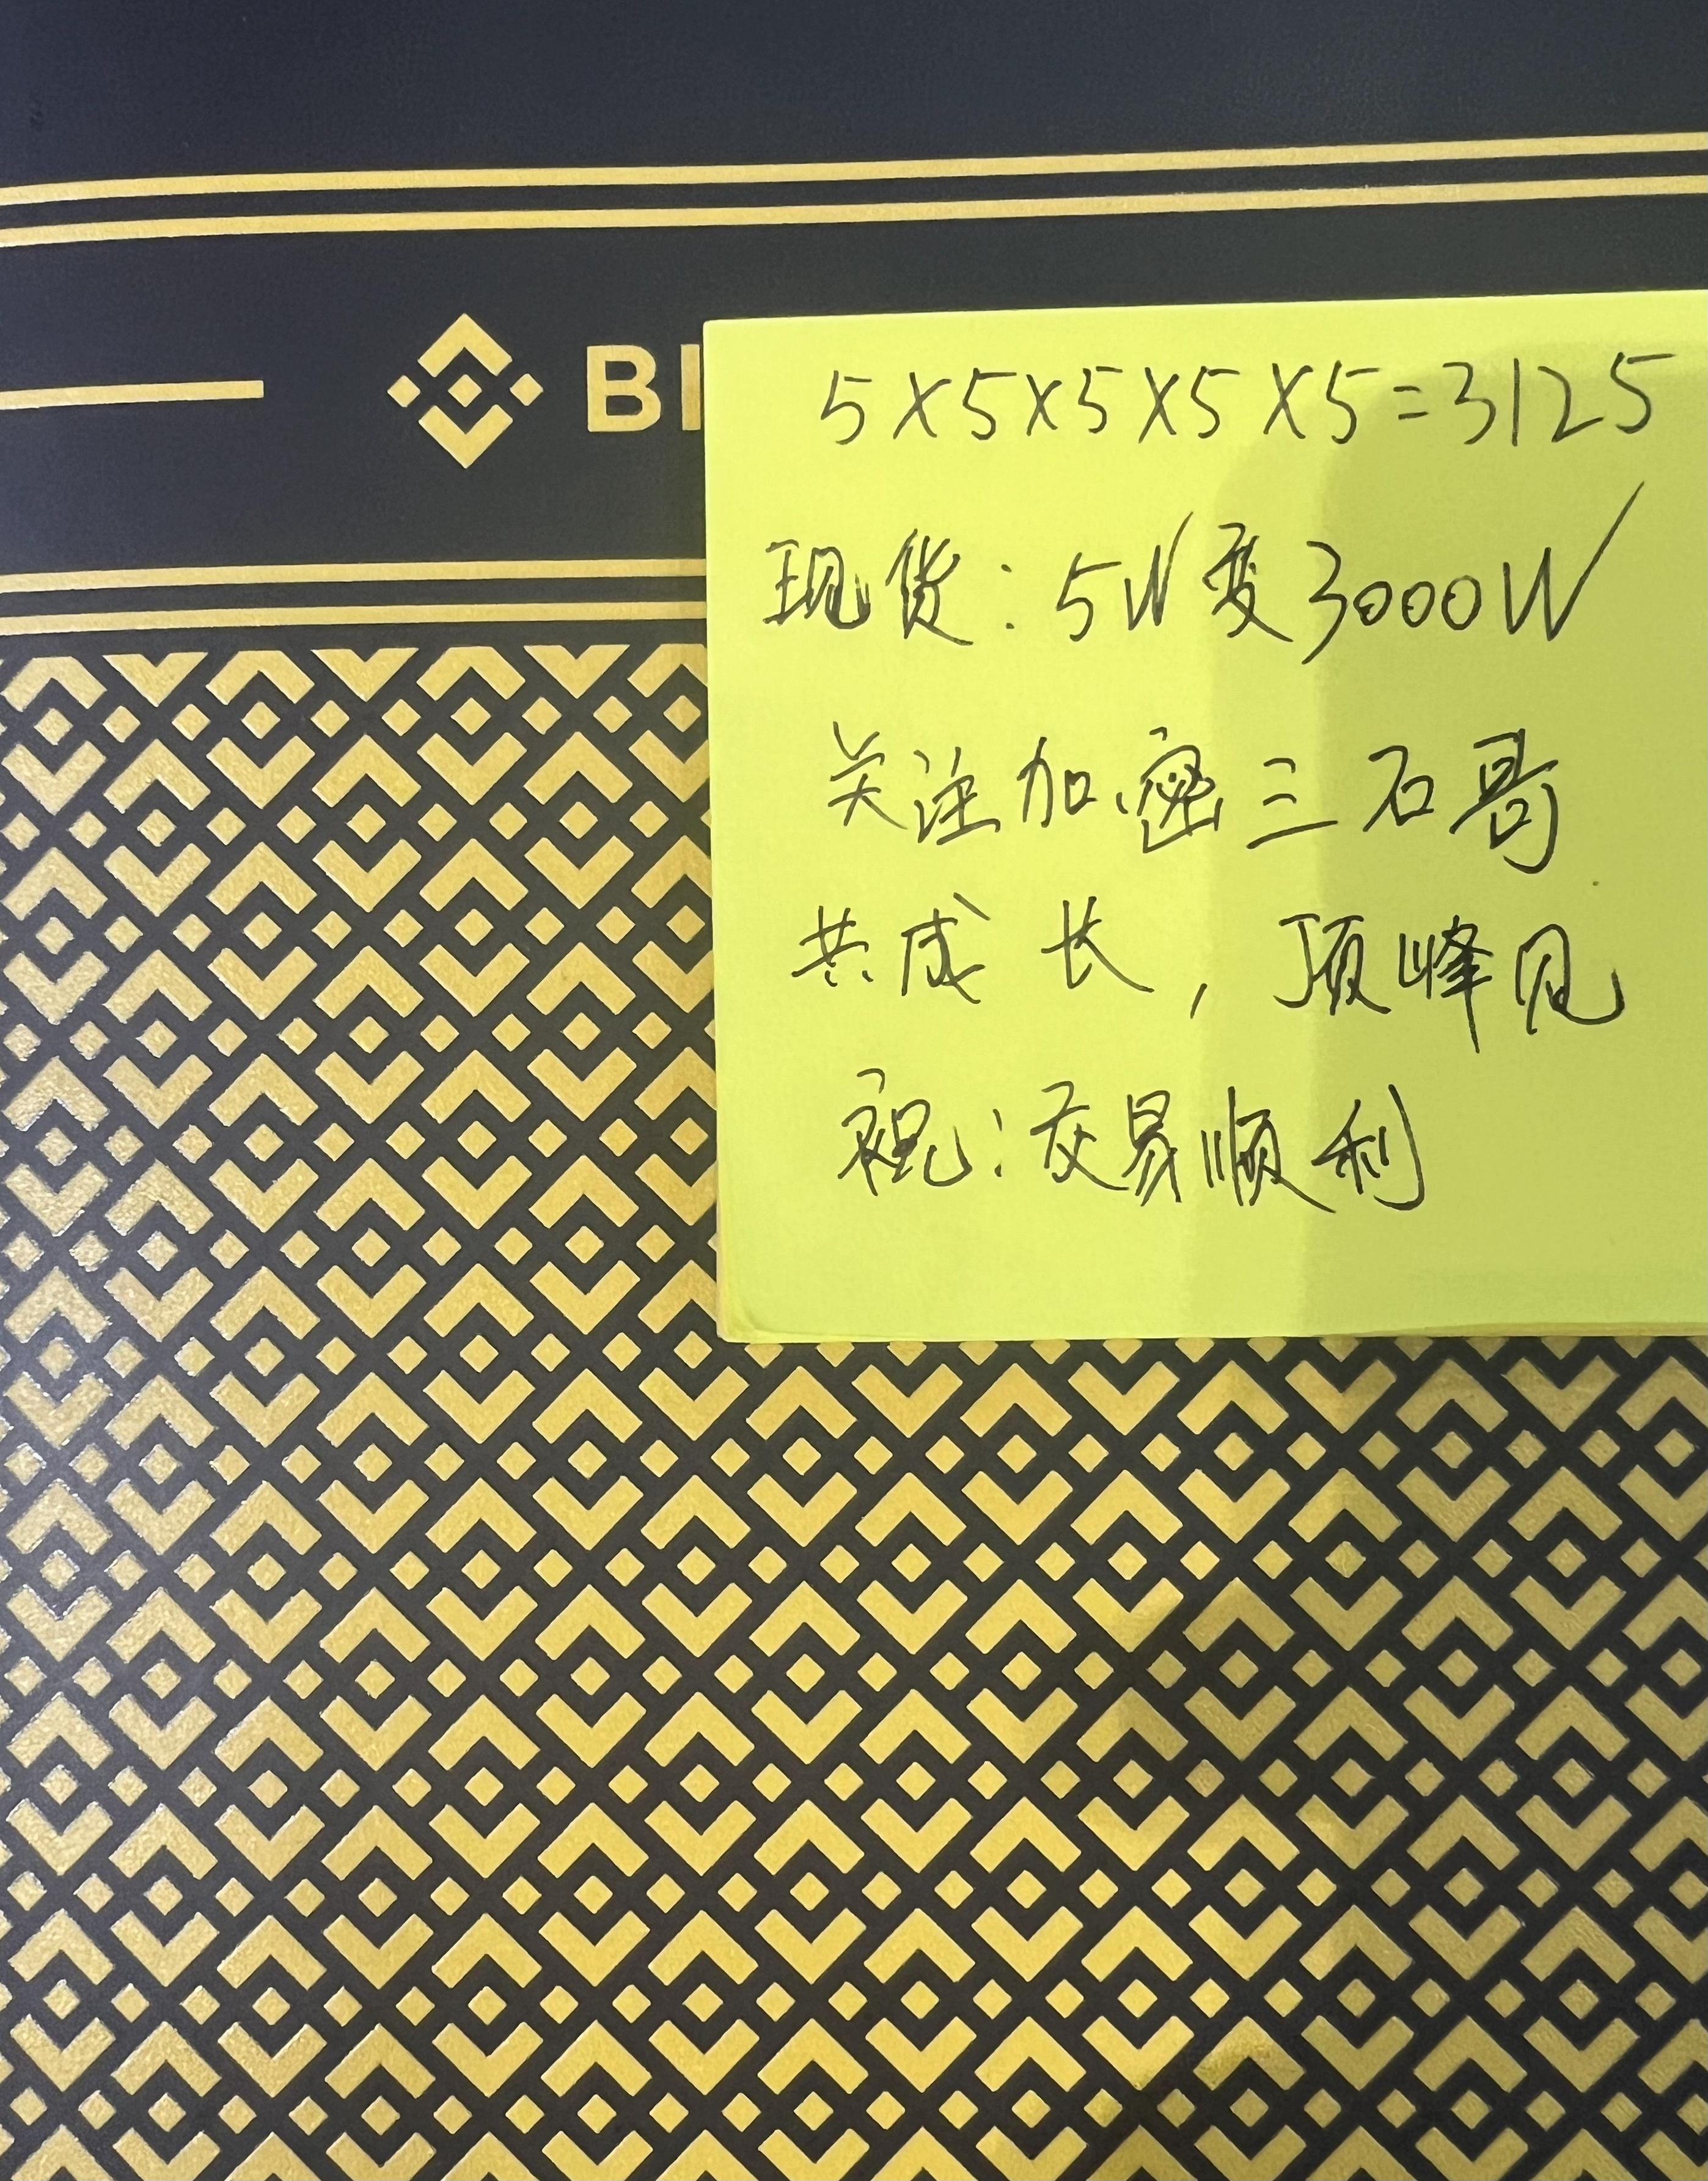 BI
5×5×5×5×5=3125
现货:5W变3000W
关注加密三石哥
共成长,顶峰见
祝:交易顺利